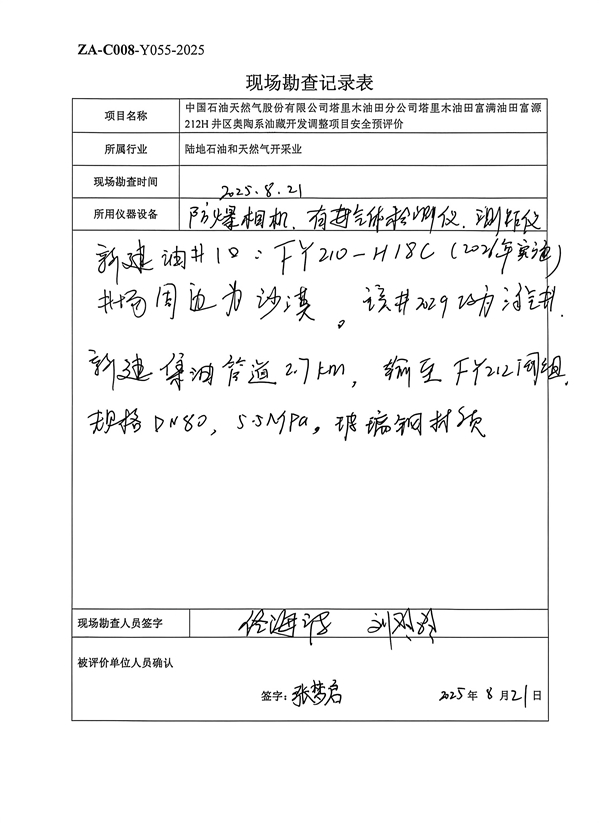 ZA-C008-Y055-2025
现场勘查记录表
项目名称
中国石油天然气股份有限公司塔里木油田分公司塔里木油田富满油田富源
212H 井区奥陶系油藏开发调整项目安全预评价
所属行业
陆地石油和天然气开采业
现场勘查时间
2025.8.21
所用仪器设备
防爆相机、有毒气体检测仪、测距仪
新建油井1口:FY210-H18C(2026年实施)
井场周边为沙漠。该井2029 改为注
新建集油管道2.7km,输至FY212阀组,
规格DN80,5.5MPa,玻璃钢材质
现场勘查人员签字
刘
被评价单位人员确认
签字:张梦启
2025年 8 月21日